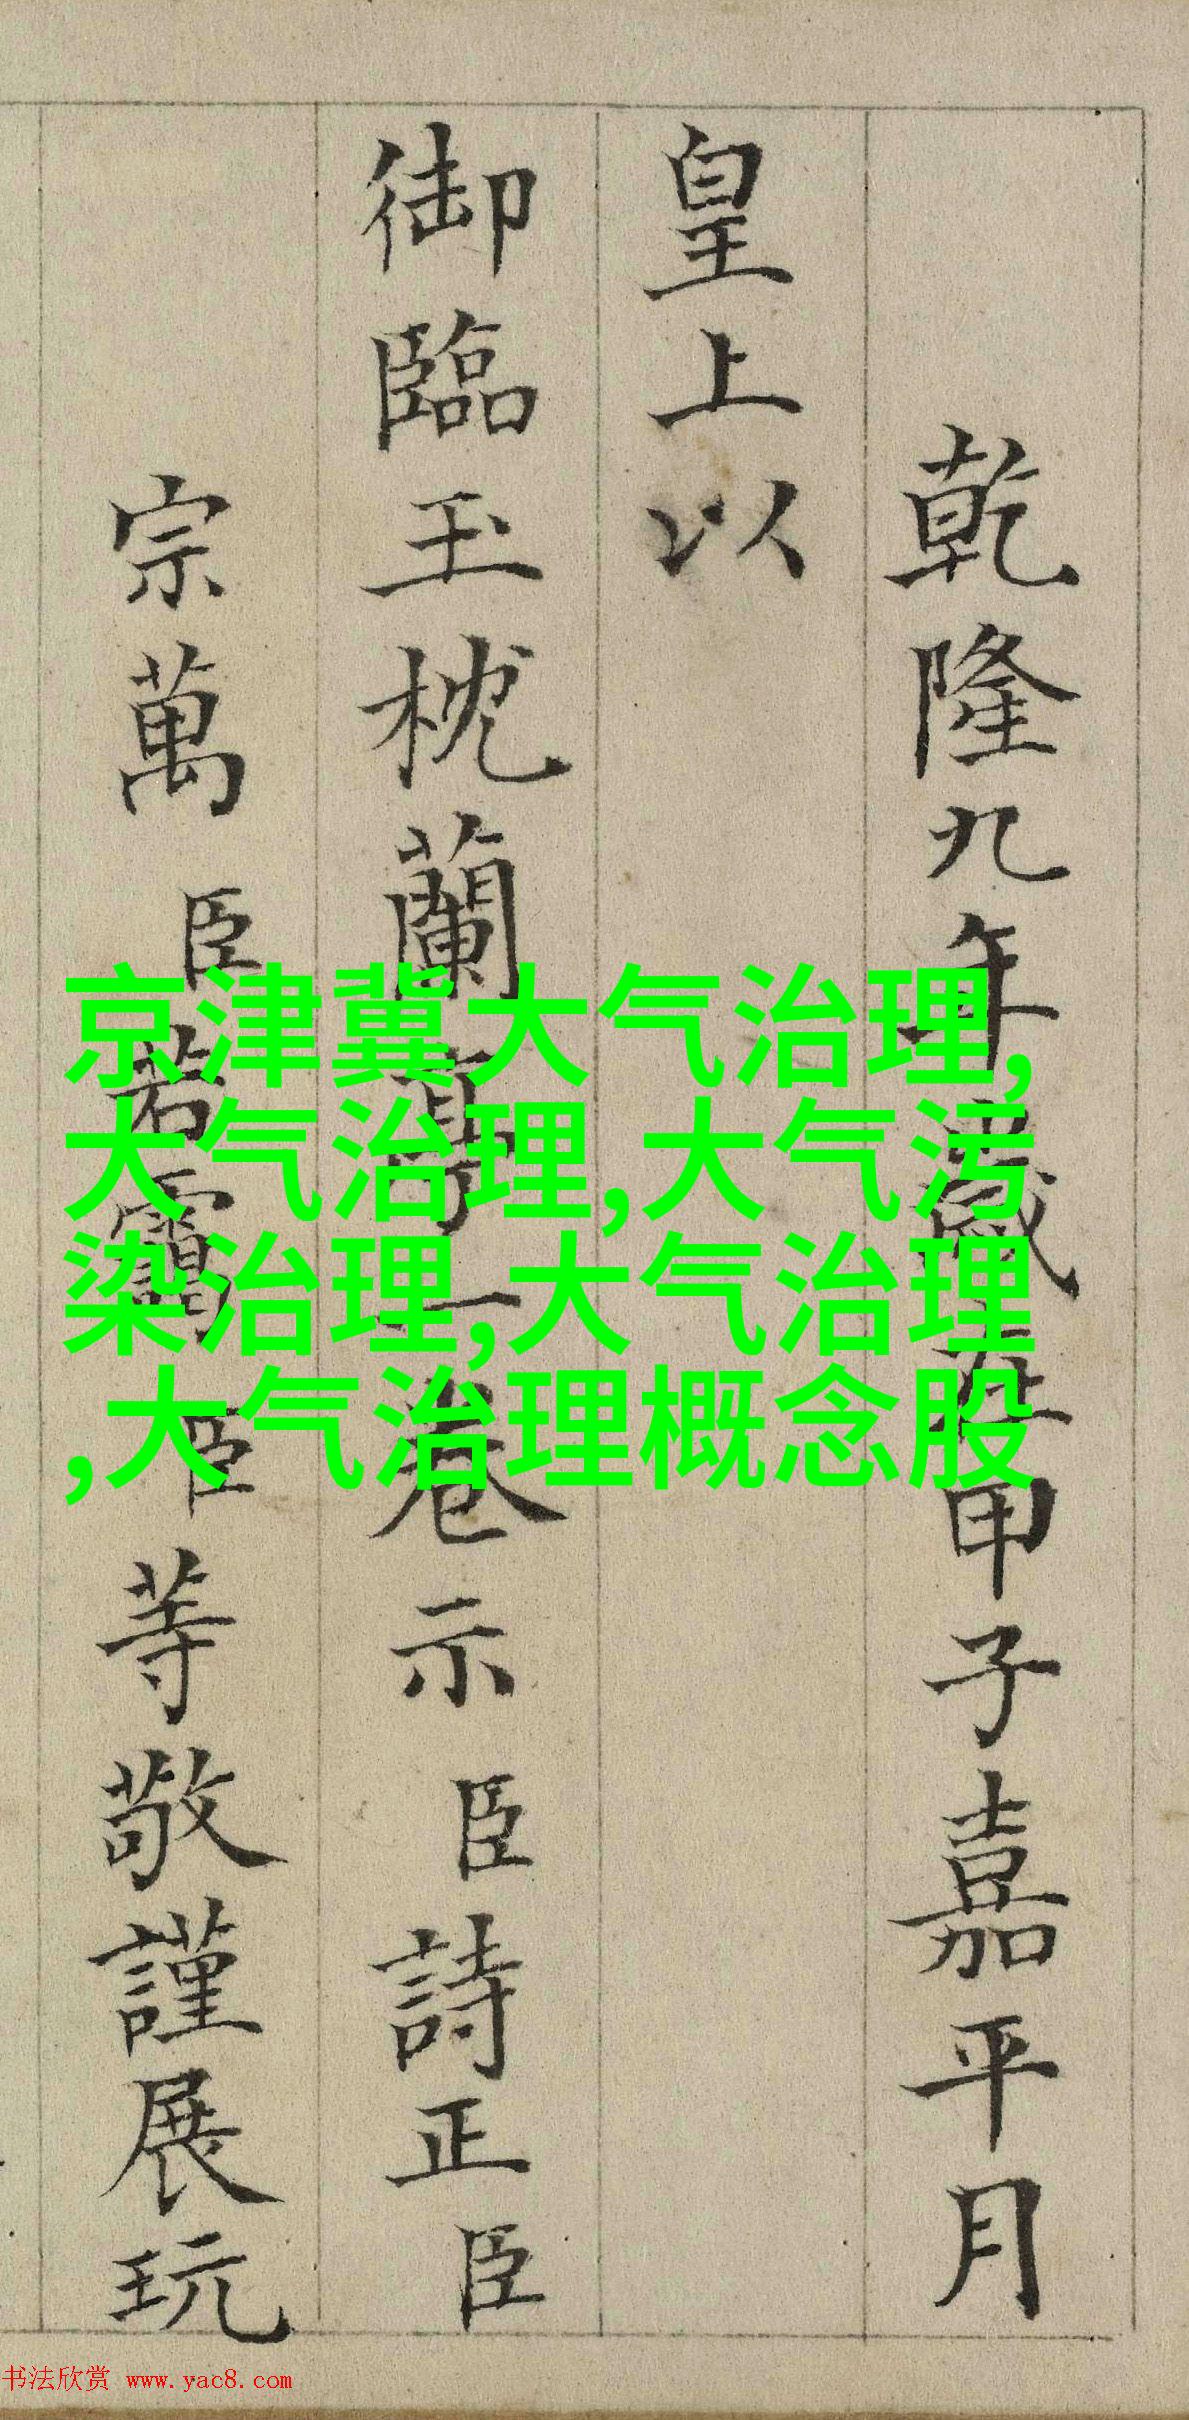 乾隆九年歲在甲子嘉平月
皇上以
御臨玉枕蘭亭一卷示臣詩正臣
宗萬臣若靄臣等敬謹展玩
京津冀大气治理,
大气治理,大气污
染治理,大气治理
,大气治理概念股
书法欣赏 www.yac8.com